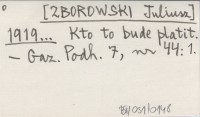 [ZBOROWSKI Juliusz]
1919... Kto to bude platit.
— Gaz. Podh. 7, nr 44: 1.